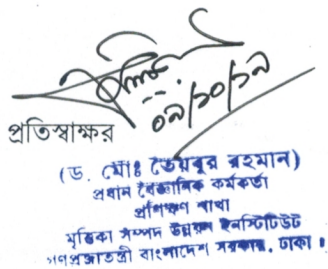 ০৯/১০/১৯
প্রতিস্বাক্ষর
(ড. মোঃ তৈয়বুর রহমান)
প্রধান বৈজ্ঞানিক কর্মকর্তা
প্রশিক্ষণ শাখা
মৃত্তিকা সম্পদ উন্নয়ন ইনস্টিটিউট
গণপ্রজাতন্ত্রী বাংলাদেশ সরকার, ঢাকা।